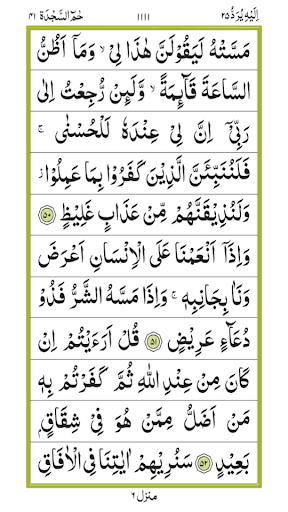 اِلَيْهِ يُرَدُّ ٢٥ ١١١١ حٰمٓ السَّجْدَة ٤١
مَسَّتْهُ لَيَقُوْلَنَّ هٰذَا لِيْ ۙ وَمَاۤ اَظُنُّ
السَّاعَةَ قَآئِمَةً ۙ وَّلَئِنْ رُّجِعْتُ اِلٰى
رَبِّيْۤ اِنَّ لِيْ عِنْدَهٗ لَلْحُسْنٰى ۚ
فَلَنُنَبِّئَنَّ الَّذِيْنَ كَفَرُوْا بِمَا عَمِلُوْا ۡ
وَلَنُذِيْقَنَّهُمْ مِّنْ عَذَابٍ غَلِيْظٍ ۝٥٠
وَاِذَاۤ اَنْعَمْنَا عَلَى الْاِنْسَانِ اَعْرَضَ
وَنَاٰ بِجَانِبِهٖ ۚ وَاِذَا مَسَّهُ الشَّرُّ فَذُوْ
دُعَآءٍ عَرِيْضٍ ۝٥١ قُلْ اَرَءَيْتُمْ اِنْ
كَانَ مِنْ عِنْدِ اللّٰهِ ثُمَّ كَفَرْتُمْ بِهٖ
مَنْ اَضَلُّ مِمَّنْ هُوَ فِيْ شِقَاقٍۭ
بَعِيْدٍ ۝٥٢ سَنُرِيْهِمْ اٰيٰتِنَا فِي الْاٰفَاقِ
منزل ٦